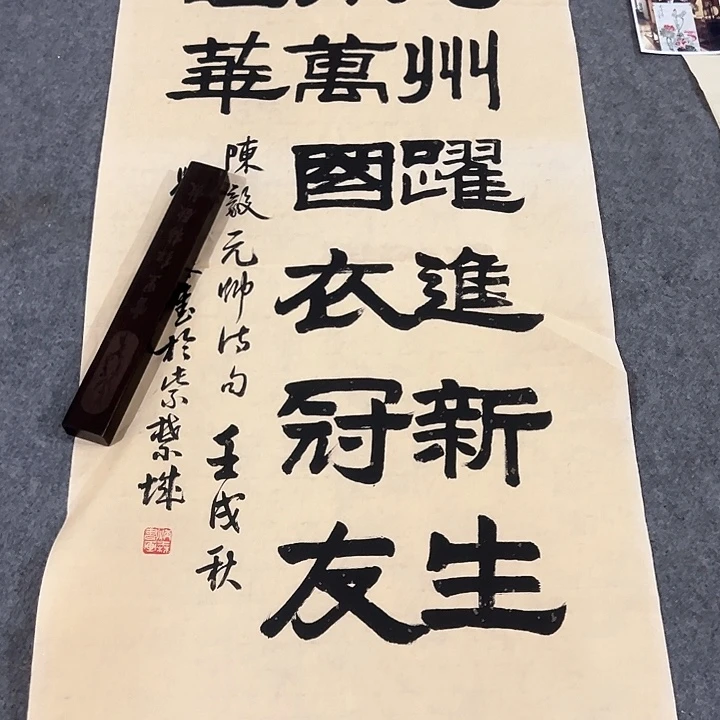 州躍進新生
萬國衣冠友
華
陳毅元帥诗句 壬戌秋
書於紫禁城